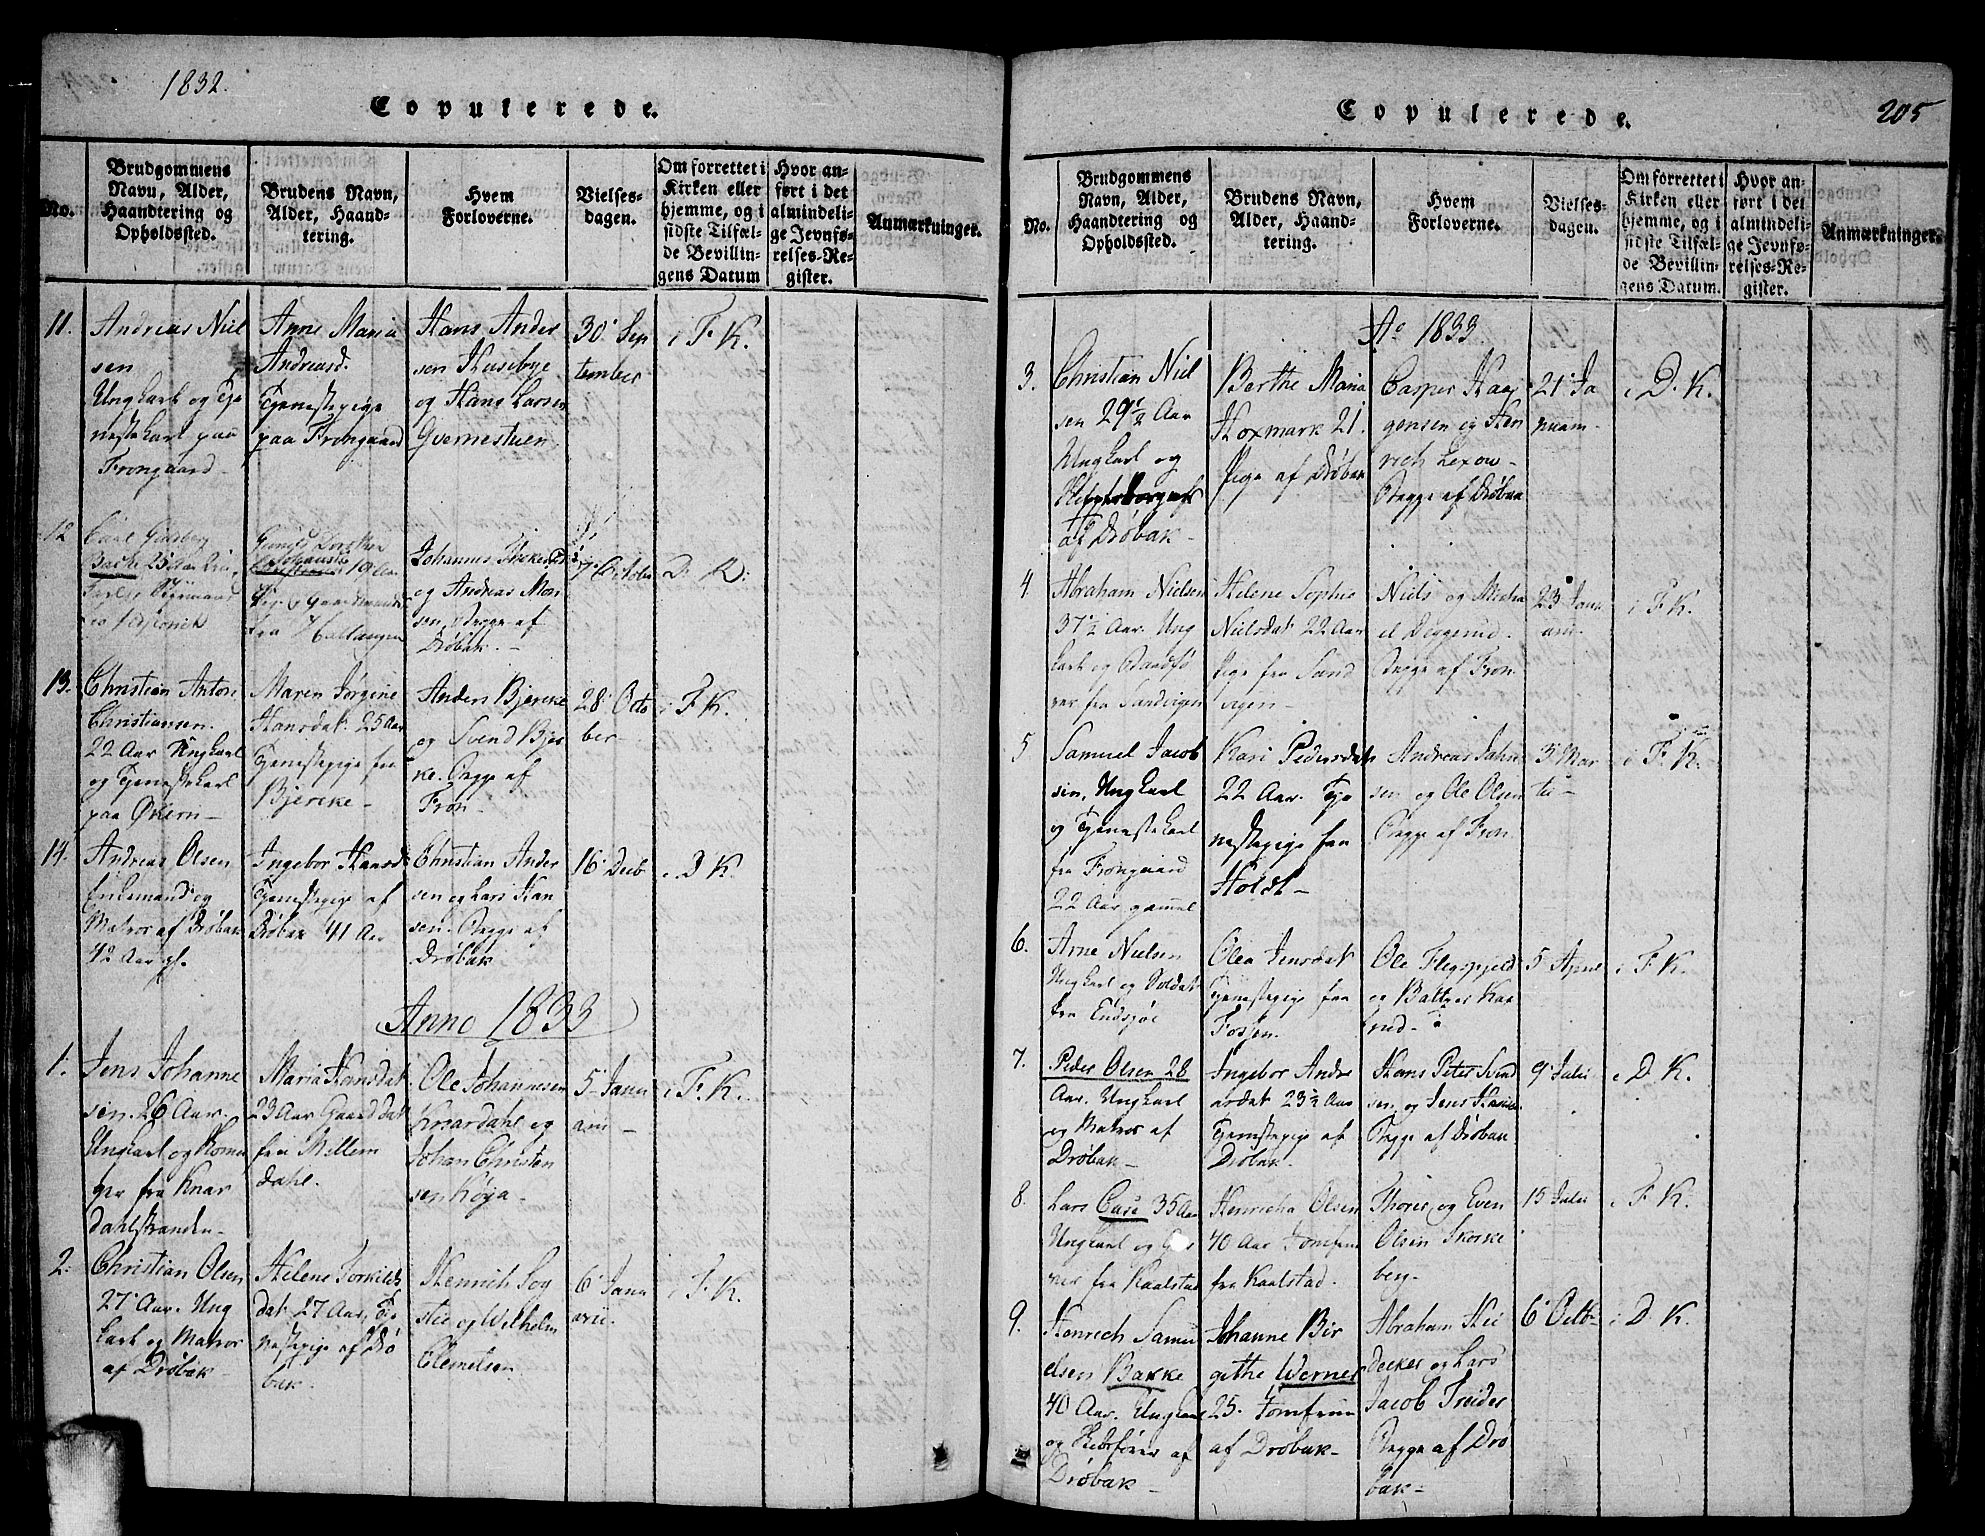 1832.
Copulerede.
No.
Brudgommens
Navn, Alder,
Haandtering og
Opholdssted.
Brudens Navn,
Alder, Haand-
tering.
Hvem
Forloverne.
Vielses-
dagen.
Om forrettet i
Kirken eller
hjemme, og i
sidste Tilfæl-
de Bevillin-
gens Datum
Hvor an-
ført i det
almindeli-
ge Jevnfø-
relses-Re-
gister.
Anmærkninger.
11.
Andreas Niel
sen
Ungkarl og Tje
nestekarl paa
Frongaard
Anne Maria
Andreasd.
Tjenestepige
paa Frongaard
Hans Ander
sen Huseby
og Hans Larsen
30' Sep
tember
i F. K.
12
Bache 25 Aar
Johannes
og Andreas Mon
sen, Begge af
Drøbak.
7' Octobr
D. K.
13.
Christian Anton
Christiansen.
22 Aar Ungkarl
og Tjenestekarl
paa Økern
Maren Jørgine
Hansdat. 25 Aar
Tjenestepige fra
Bjercke
Anders Bjercke
og Svend Bjer
ke. Begge af
Fron
28' Octo
ber
i F. K.
14.
Andreas Olsen
Enkemand og
Matros af Drøbak
42 Aar gl.
Ingebor Hansd
Tjenestepige af
Drøbak 41 Aar
Christian Ander
sen og Lars Han
sen. Begge af
Drøbak
16' Decb
i D K.
Anno 1833
1.
Jens Johanne
sen. 26 Aar.
Ungkarl og
fra Knar
dahlstranden
Maria Hansdat
23 Aar Gaarddat
fra Mellem
dahl.
Ole Johannesen
Knardahl og
Johan Christen
sen
5' Janu
arii
i F. K.
2.
Christian Olsen
27 Aar. Ung
karl og Matros
af Drøbak
Helene Torkilds
dat. 27 Aar. Tje
nestepige af Drø
bak.
Henrich Sog
stie og Wilhelm
Clemetsen
6' Janu
arii.
i F. K.
Copulerede.
205
No.
Brudgommens
Navn, Alder,
Haandtering og
Opholdssted.
Brudens Navn,
Alder, Haand-
tering.
Hvem
Forloverne.
Vielses-
dagen.
Om forrettet i
Kirken eller
hjemme, og i
sidste Tilfæl-
de Bevillin-
gens Datum.
Hvor an-
ført i det
almindeli-
ge Jevnfø-
relses-Re-
gister.
Anmærkninger.
Ao 1833
3.
Christian Niel
sen 29½ Aar
Ungkarl og
af Drøbak
Barthe Maria
Hoxmark 21.
Pige af Drøbak
Casper Haa
gensen og Hen
rich Lexow
Begge af Drøbak
21' Ja
nuarii
i D. K.
4
Abraham Nielsen
37½ Aar. Ung
karl og
fra Sandvigen
Helene Sophie
Nielsdat 22 Aar
Pige fra Sand
vigen
Niels og Micha
el Deggerud.
Begge af Fron
23 Janu
arii
i F. K.
5
Samuel Jacob
sen, Ungkarl
og Tjenestekarl
fra Frongaard
22 Aar gammel
Kari Pedersdat
22 Aar. Tje
nestepige fra
Holdt
Andreas Jahn
sen og Ole Olsen
Begge af Fron
3' Mar
tii
i F. K.
6.
Arne Nielsen
Ungkarl og Soldat
fra Endsjøe
Olea Jensdat
Tjenestepige fra
Fossen.
Ole Flegsjeld
og Baltzer Kax
rud
5 April
i F. K.
7.
Peder Olsen 28
Aar. Ungkarl
og Matros af
Drøbak
Ingebor Andre
asdat 23½ Aar
Tjenestepige af
Drøbak.
Hans Peter Svend
sen og Jens Hansen
Begge af Drøbak
9' Julii
i D. K.
8.
Lars 35 Aar
Ungkarl og
fra Kaalstad
Henricha Olsen
40 Aar Jomfrue
fra Kaalstad.
Thorer og Even
Olsen Skorke
berg.
15 Julii
i F. K.
9.
Henrich Samu
elsen Bakke
40 Aar. Ungkarl
og af
Drøbak
Johanne Bir
githe Werner
25. Jomfrue
af Drøbak
Abraham Hie
decker og Lars
Jacob Treider
Begge af Drø
bak
6' Octb
i D. K.